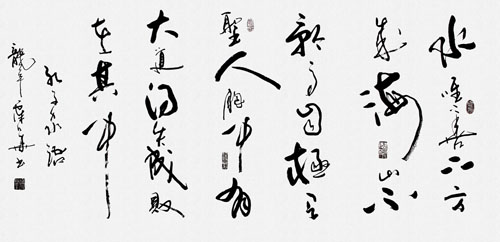 水唯善下方
成海山不
矜高自極天
聖人胸中有
大道得失成敗
在其中
孔子
龍年